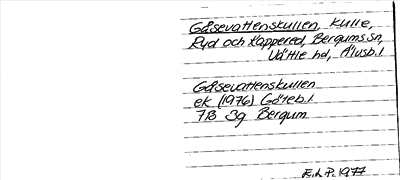 Gåsevattenskullen, kulle,
Ryd och Kappered, Bergums sn,
Vättle hd, Älvsb.l
Gåsevattenskullen
ek (1976) Göteb.l
7B 3g Bergum
E.L.P. 1977